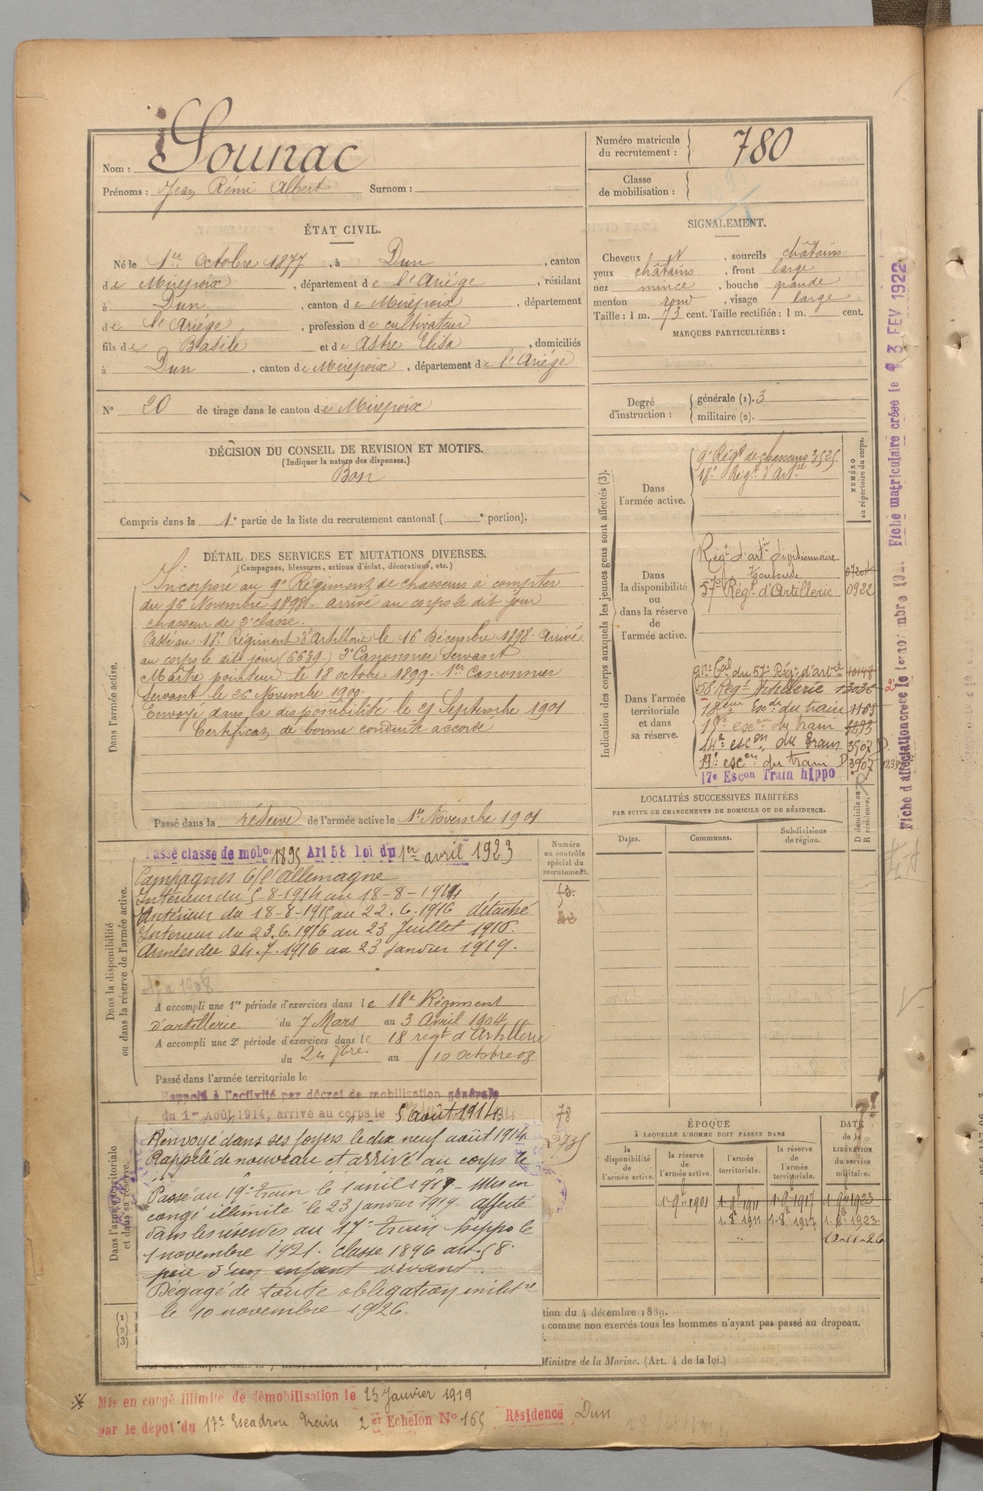 Nom : Sounac
Prénoms : Jean Rémi Albert Surnom :
Numéro matricule du recrutement : 780
Classe de mobilisation :
ÉTAT CIVIL.
Né le 1er Octobre 1877, à Dun, canton
de Mirepoix, département de l'Ariége, résidant
à Dun, canton de Mirepoix, département
de l'Ariége, profession de cultivateur
fils de Basile et de Astre Elisa, domiciliés
à Dun, canton de Mirepoix, département de l'Ariége
N° 20 de tirage dans le canton de Mirepoix
SIGNALEMENT.
Cheveux N, sourcils châtains
yeux châtains, front large
nez mince, bouche grande
menton rond, visage large
Taille : 1 m. 73 cent. Taille rectifiée : 1 m. cent.
MARQUES PARTICULIÈRES :
Degré d'instruction : générale (1). 3
militaire (2).
DÉCISION DU CONSEIL DE REVISION ET MOTIFS.
(Indiquer la nature des dispenses.)
Bon
Compris dans la 1e partie de la liste du recrutement cantonal ( e portion).
DÉTAIL DES SERVICES ET MUTATIONS DIVERSES.
(Campagnes, blessures, actions d'éclat, décorations, etc.)
Dans l'armée active.
Incorporé au 9e Régiment de chasseurs à compter
du 16 Novembre 1898. arrivé au corps le dit jour
chasseur de 2e classe.
Passé au 18e Régiment d'Artillerie le 16 Décembre 1898. Arrivé
au corps le dit jour (6639) 2e Canonnier Servant
Maître pointeur le 18 octobre 1899. 1er Canonnier
Servant le 26 Novembre 1900.
Envoyé dans la disponibilité le 21 Septembre 1901
Certificat de bonne conduite accordé
Passé dans la réserve de l'armée active le 1er Novembre 1901
Indication des corps auxquels les jeunes gens sont affectés (3).
NUMÉRO au répertoire du corps.
Dans l'armée active.
9e Régt de chasseurs 3525
18e Régt d'Art.ie
Dans la disponibilité ou dans la réserve de l'armée active.
Toulouse
57e Régt d'Artillerie 0922
Dans l'armée territoriale et dans sa réserve.
du 57e Régt d'art
Régt Artillerie
du train 1103
esc.on du train
14e esc.on du Train 3507 D.
19e esc.on du train D 3907
17e Escon Train hippo
D domicile ou R résidence.
LOCALITÉS SUCCESSIVES HABITÉES
PAR SUITE DE CHANGEMENTS DE DOMICILE OU DE RÉSIDENCE.
Dates. Communes. Subdivisions de région.
Numéro au contrôle spécial du recrutement.
Dans la disponibilité ou dans la réserve de l'armée active.
Passé classe de mobon 1895 Art 58 loi du 1er avril 1923
Campagnes c/ l'allemagne
Intérieur du 5-8-1914 au 18-8-1914
Intérieur du 18-8-1915 au 22.6.1916 détaché
Intérieur du 23.6.1916 au 23 Juillet 1916.
Armées du 24.7.1916 au 23 Janvier 1919.
A accompli une 1re période d'exercices dans le 18e Régiment
d'artillerie du 7 Mars au 3 Avril 1904
A accompli une 2e période d'exercices dans le 18 régt d'Artillerie
du 24 7bre au 10 octobre 08
Passé dans l'armée territoriale le
Rappelé à l'activité par décret de mobilisation générale
du 1er Août 1914, arrivé au corps le 5 août 1914
Renvoyé dans ses foyers le dix neuf août 1914.
Rappelé de nouveau et arrivé au corps le
Passé au 19e train le 1 avril 191 Mis en
congé illimité le 23 janvier 1919. affecté
dans les réserves au 17e train hippo le
1 novembre 1921. classe 1896 art. 58.
père d'un enfant vivant.
Dégagé de toute obligation milit.re
le 10 novembre 1926.
ÉPOQUE
À LAQUELLE L'HOMME DOIT PASSER DANS
la disponibilité de l'armée active.
la réserve de l'armée active.
l'armée territoriale.
la réserve de l'armée territoriale.
DATE de la LIBÉRATION du service militaire.
tion du 4 décembre 1889.
comme non exercés tous les hommes n'ayant pas passé au drapeau.
Ministre de la Marine. (Art. 4 de la loi.)
Mis en congé illimité de démobilisation le 23 Janvier 1919
par le dépôt du 17e Escadron Train 2er Echelon N° 165 Résidence Dun
Fiche matriculaire créée le 3 FEV 1922